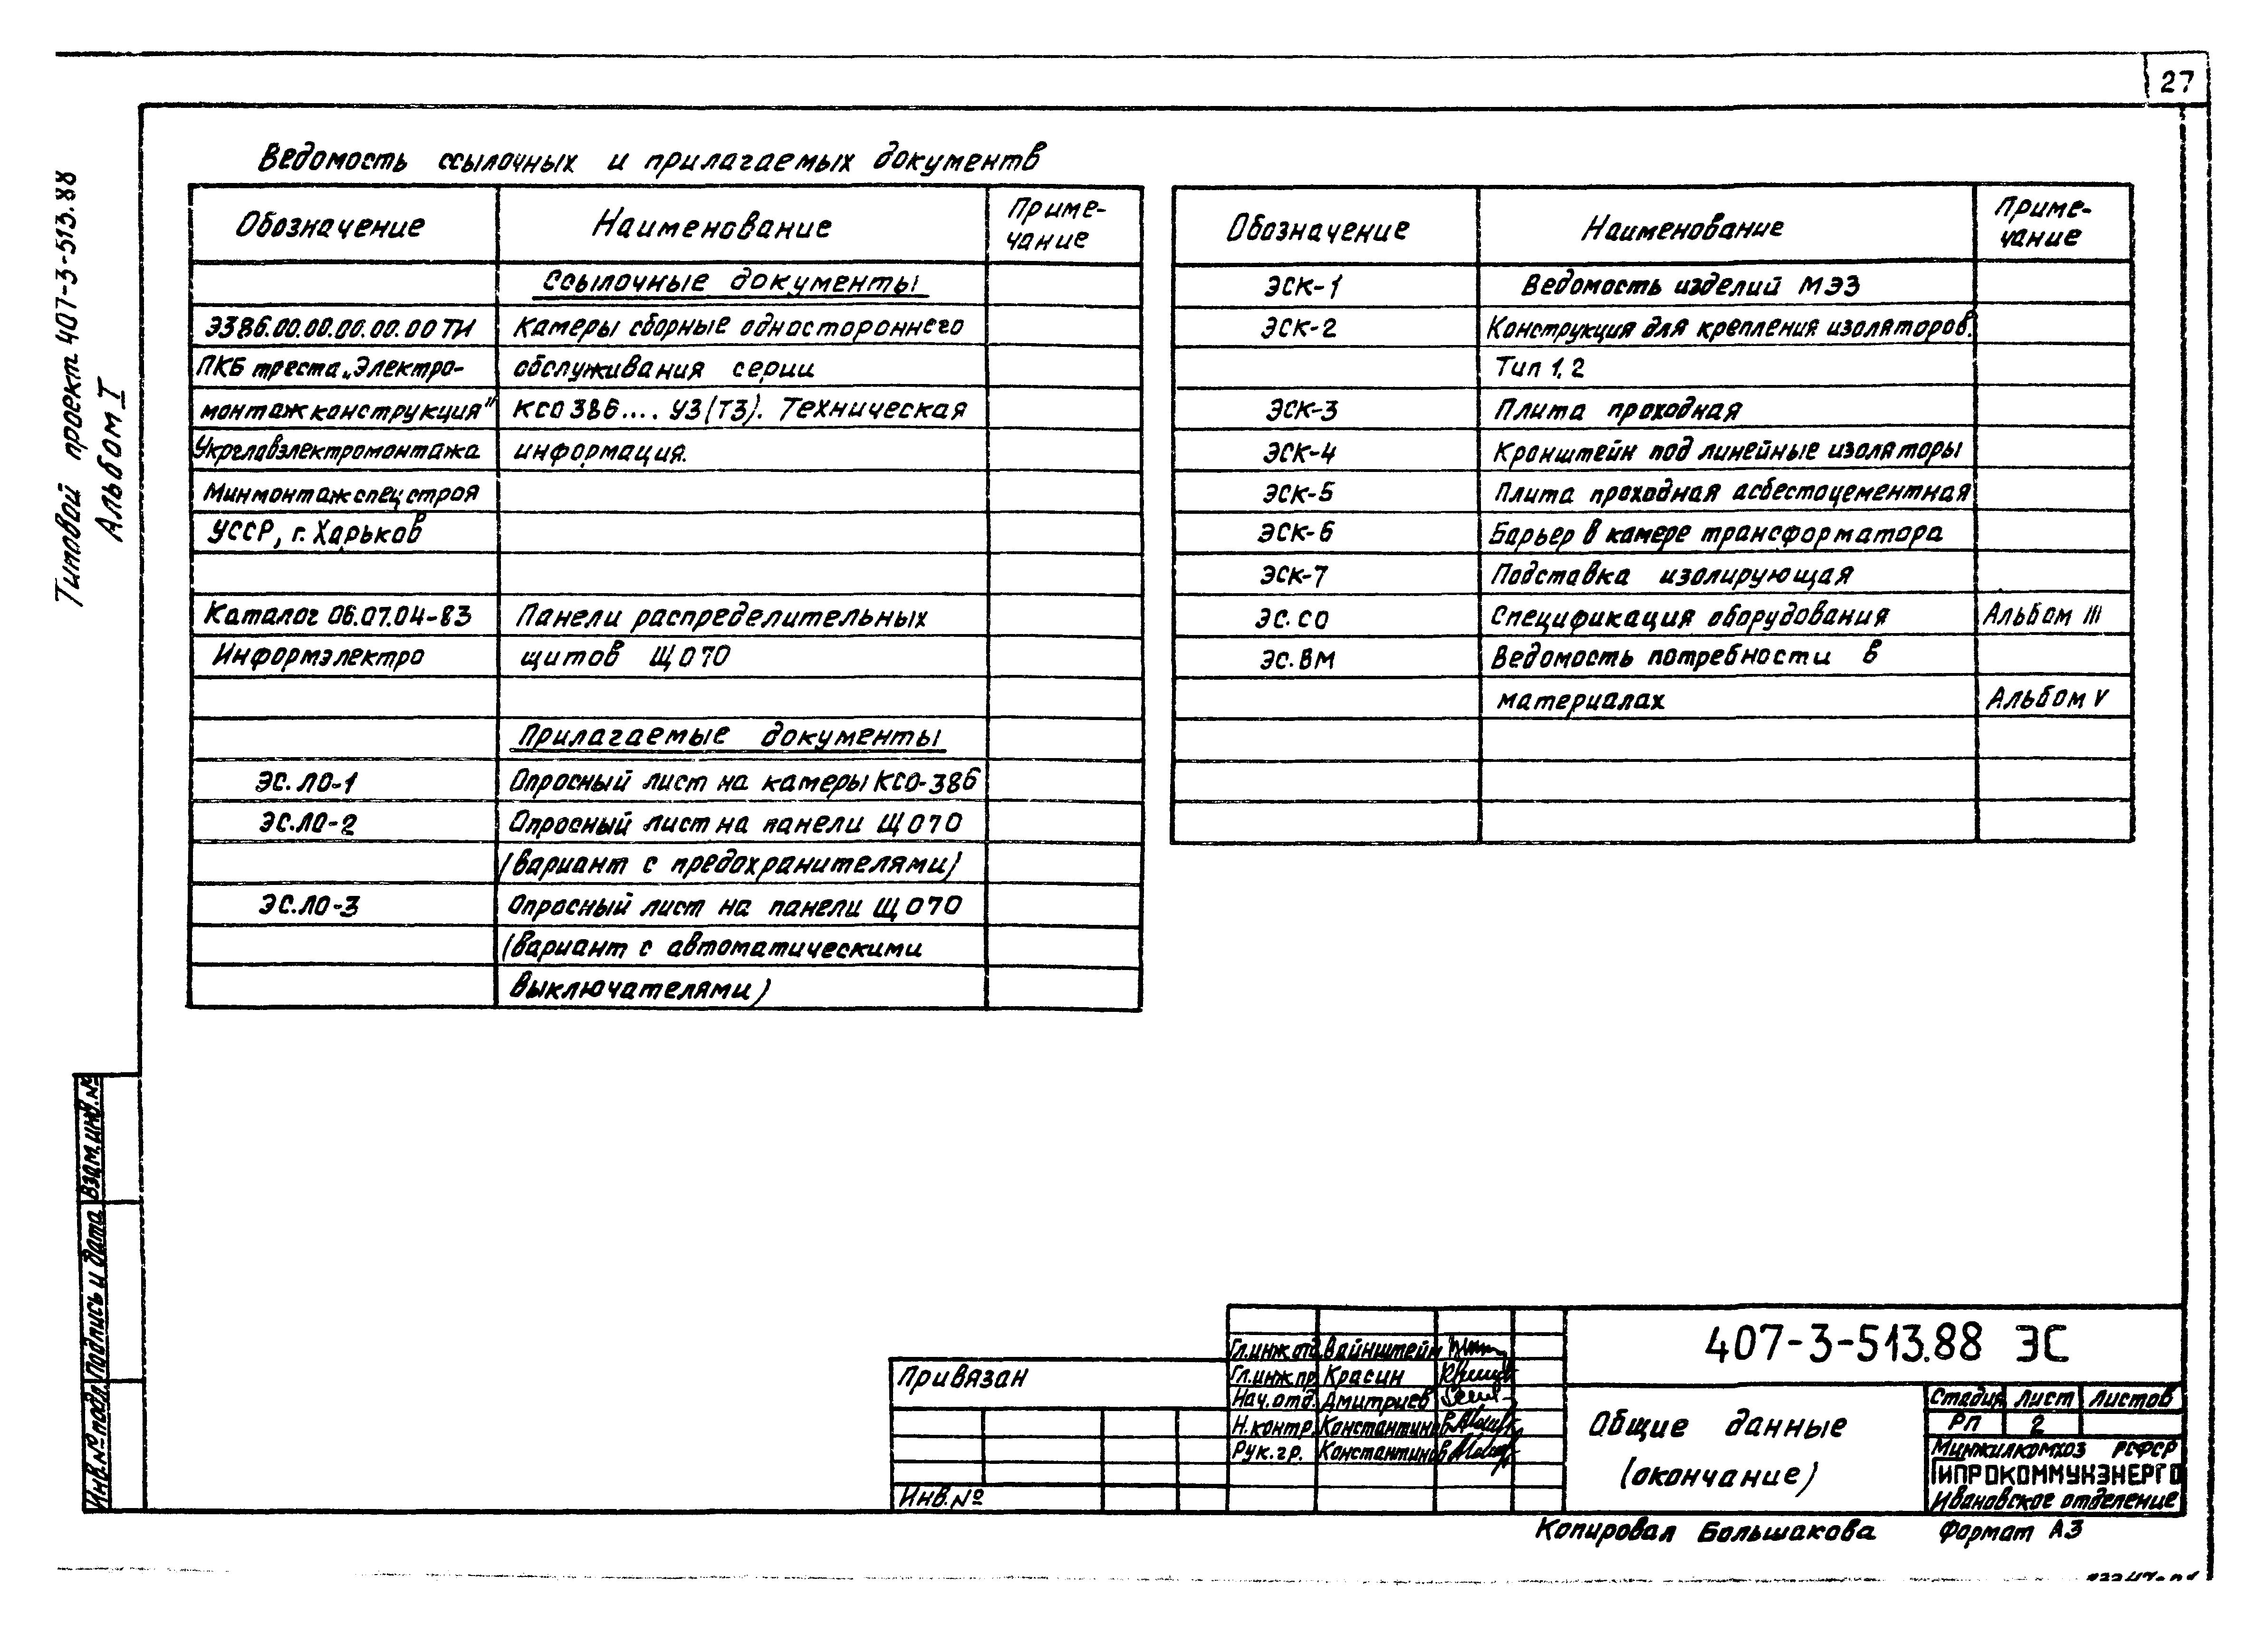 27
Типовой проект 407-3-513.88
Альбом I
Ведомость ссылочных и прилагаемых документв
Обозначение Наименование Приме-
чание
Ссылочные документы
Э386.00.00.00.00.00 ТИ Камеры сборные одностороннего
ПКБ треста „Электро- обслуживания серии
монтажконструкция" КСО 386.... У3(Т3). Техническая
Укрглавэлектромонтажа информация.
Минмонтажспецстроя
УССР, г. Харьков
Каталог 06.07.04-83 Панели распределительных
Информэлектро щитов ЩО70
Прилагаемые документы
ЭС.ЛО-1 Опросный лист на камеры КСО-386
ЭС.ЛО-2 Опросный лист на панели ЩО70
(вариант с предохранителями)
ЭС.ЛО-3 Опросный лист на панели ЩО70
(вариант с автоматическими
выключателями)
Обозначение Наименование Приме-
чание
ЭСК-1 Ведомость изделий МЭЗ
ЭСК-2 Конструкция для крепления изоляторов.
Тип 1, 2
ЭСК-3 Плита проходная
ЭСК-4 Кронштейн под линейные изоляторы
ЭСК-5 Плита проходная асбестоцементная
ЭСК-6 Барьер в камере трансформатора
ЭСК-7 Подставка изолирующая
ЭС.СО Спецификация оборудования Альбом III
ЭС.ВМ Ведомость потребности в
материалах Альбом V
Взам.инв.№
Подпись и дата
Инв.№ подл.
Привязан
Инв.№
Гл.инж.отд. Вайнштейн
Гл.инж.пр. Красин
Нач.отд. Дмитриев
Н.контр. Константинов
Рук.гр. Константинов
407-3-513.88 ЭС
Общие данные
(окончание)
Стадия Лист Листов
РП 2
Минжилкомхоз РСФСР
ГИПРОКОММУНЭНЕРГО
Ивановское отделение
Копировал Большакова Формат А3